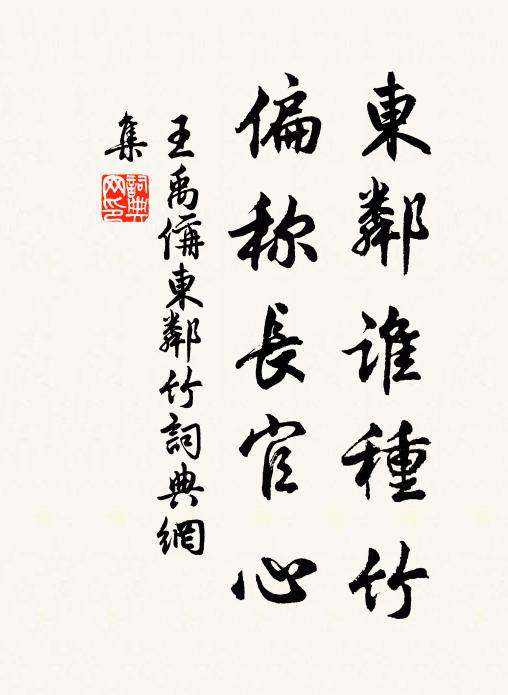 東鄰誰種竹
偏称長官心
王禹偁東鄰竹詞典網
集
詞典
网印